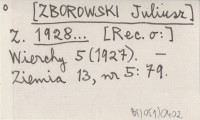 [ZBOROWSKI Juliusz]
Z. 1928... [Rec. o:]
Wierchy 5 (1927). —
Ziemia 13, nr 5: 79.